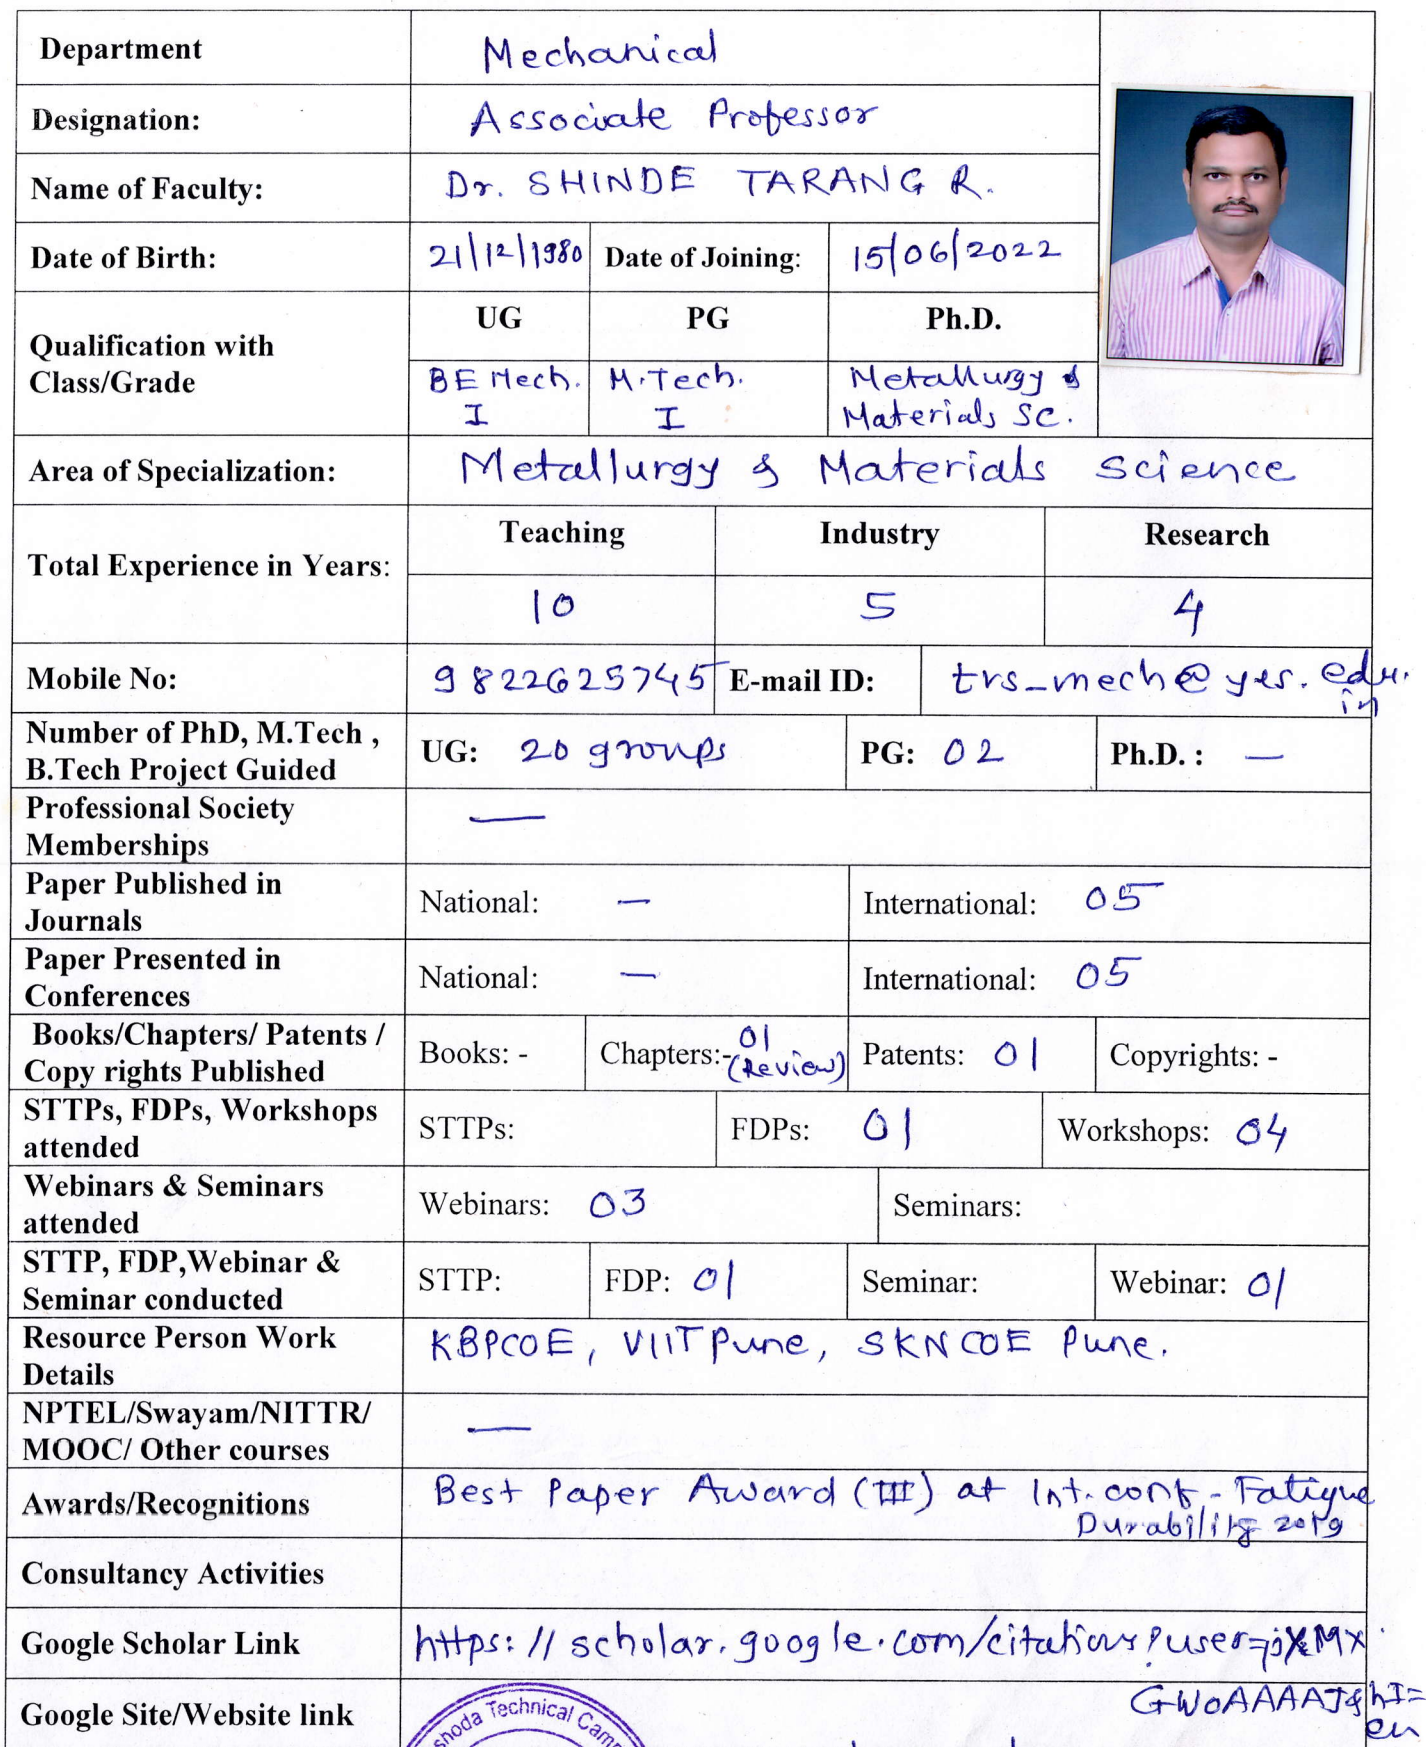 Department Mechanical
Designation: Associate Professor
Name of Faculty: Dr. SHINDE TARANG R.
Date of Birth: 21/12/1980 Date of Joining: 15/06/2022
Qualification with Class/Grade
UG PG Ph.D.
BE Mech. I M.Tech. I Metallurgy & Materials Sc.
Area of Specialization: Metallurgy & Materials Science
Total Experience in Years:
Teaching Industry Research
10 5 4
Mobile No: 9822625745 E-mail ID: trs_mech@yes.edu.in
Number of PhD, M.Tech , B.Tech Project Guided
UG: 20 groups PG: 02 Ph.D. : —
Professional Society Memberships
—
Paper Published in Journals
National: — International: 05
Paper Presented in Conferences
National: — International: 05
Books/Chapters/ Patents / Copy rights Published
Books: - Chapters:- 01 (Review) Patents: 01 Copyrights: -
STTPs, FDPs, Workshops attended
STTPs: FDPs: 01 Workshops: 04
Webinars & Seminars attended
Webinars: 03 Seminars:
STTP, FDP,Webinar & Seminar conducted
STTP: FDP: 01 Seminar: Webinar: 01
Resource Person Work Details
KBPCOE, VIIT Pune, SKNCOE Pune.
NPTEL/Swayam/NITTR/ MOOC/ Other courses
—
Awards/Recognitions
Best Paper Award (III) at Int. conf. - Fatigue Durability 2019
Consultancy Activities
Google Scholar Link
https://scholar.google.com/citations?user=
GWoAAAAJ&hl=en
Google Site/Website link
shoda Technical Cam